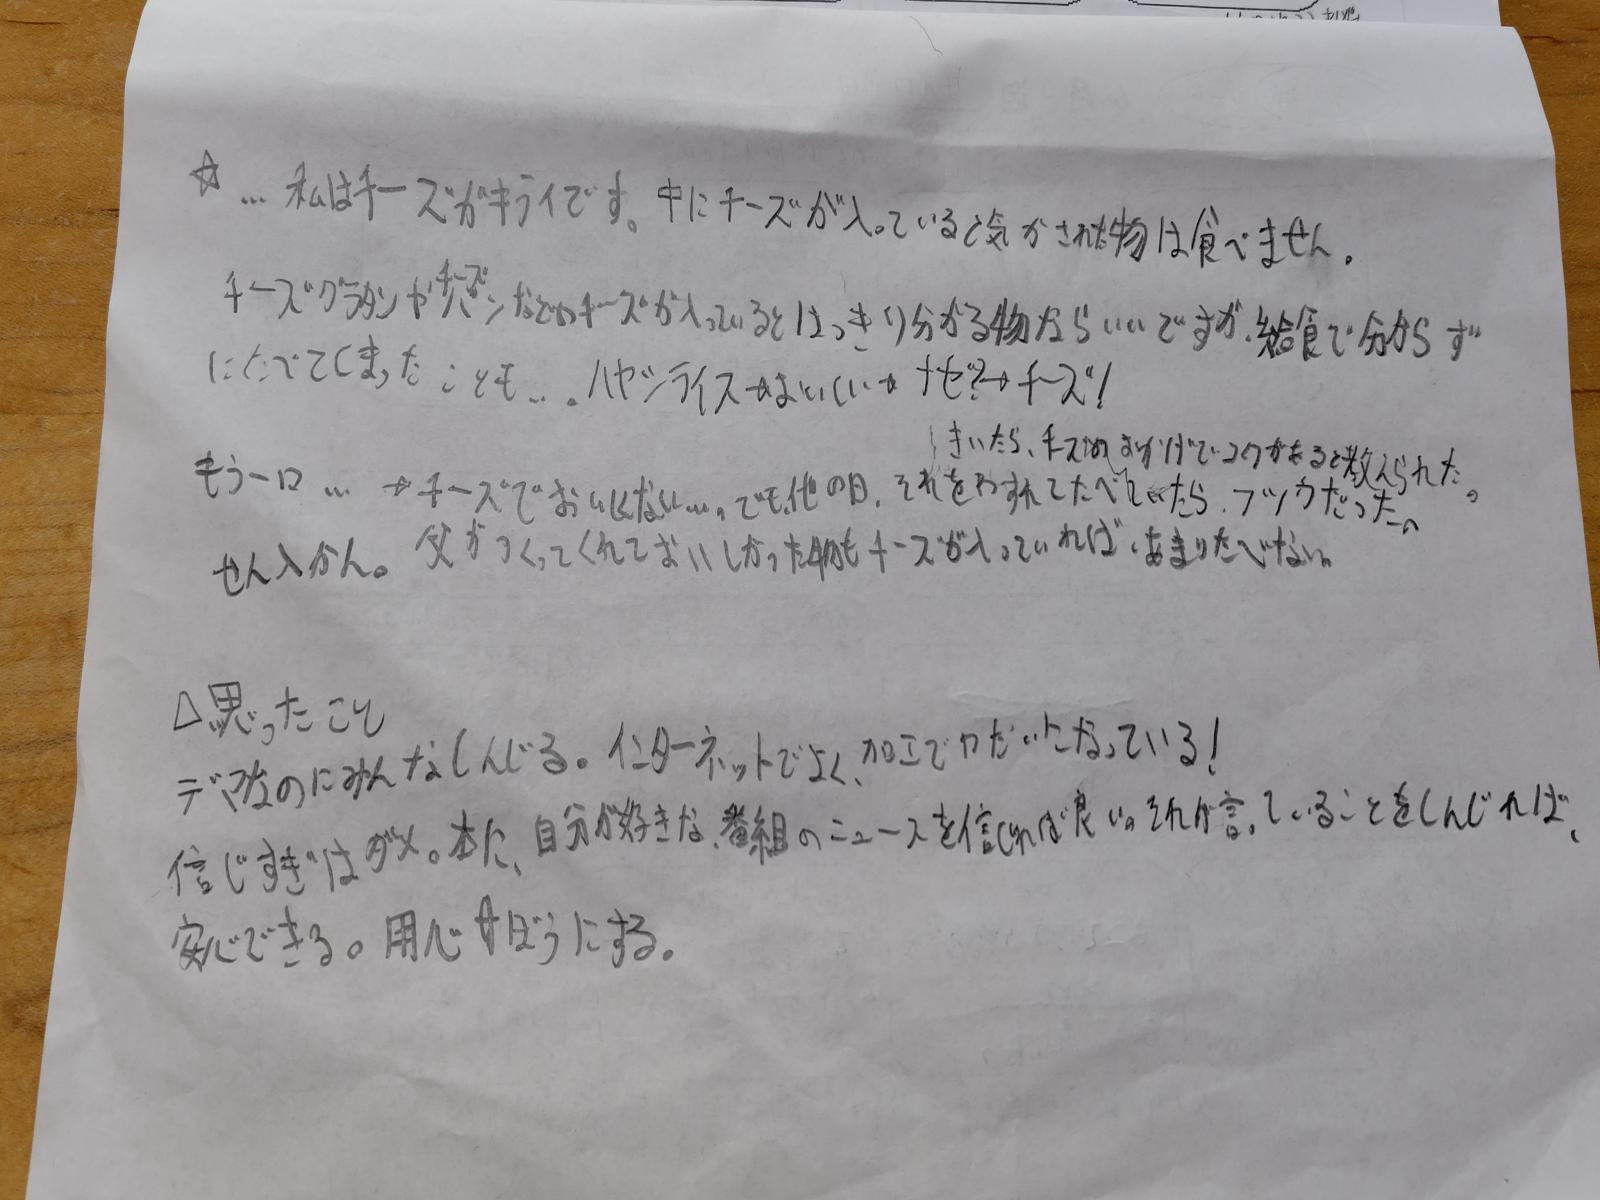 ☆…私はチーズがキライです。中にチーズが入っていると気かされた物は食べません。
チーズグラタンやチーズパンなどのチーズが入っているとはっきり分かる物ならいいですが、給食で分からず
にたべてしまったことも…。ハヤシライス→おいしい→ナゼ?→チーズ!
きいたら、チーズのおかげでコクがあると教えられた。
もう一口…→チーズでおいしくない…。でも、他の日、それをわすれてたべていたら、フツウだった。
せん入かん。父がつくってくれておいしかった物もチーズが入っていれば、あまりたべない。
△思ったこと
デマなのにみんなしんじる。インターネットでよく、加工でわだいになっている!
信じすぎはダメ。本に、自分が好きな、番組のニュースを信じれば良い。それが言っていることをしんじれば、
安心できる。用心ぶかにする。